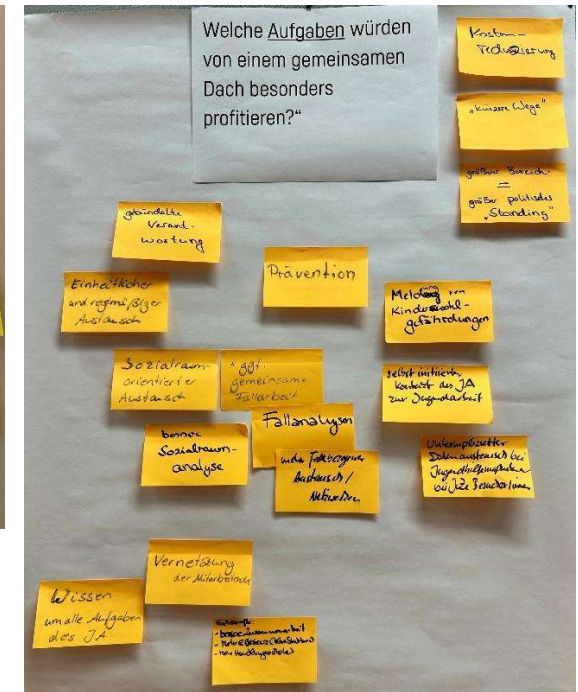 Welche Aufgaben würden
von einem gemeinsamen
Dach besonders
profitieren?“
Kosten-
reduzierung
„kürzere Wege“
größerer Bereich
=
größer politisches
„Standing“
gebündelte
Verant-
wortung
Prävention
Einheitlicher
und regmäßiger
Austausch
Meldung von
Kindeswohl-
gefährdungen
Sozialraum-
orientierter
Austausch
+ ggf.
gemeinsame
Fallarbeit
selbst initiierter
Kontakt des JA
zur Jugendarbeit
Fallanalysen
bessere
Sozialraum-
analyse
mehr
Austausch /
Netzwerken
Unkomplizierter
Datenaustausch bei
bei JZe BesucherInnen
Vernetzung
der Mitarbeitende
Wissen
um alle Aufgaben
des JA
- bessere Zusammenarbeit